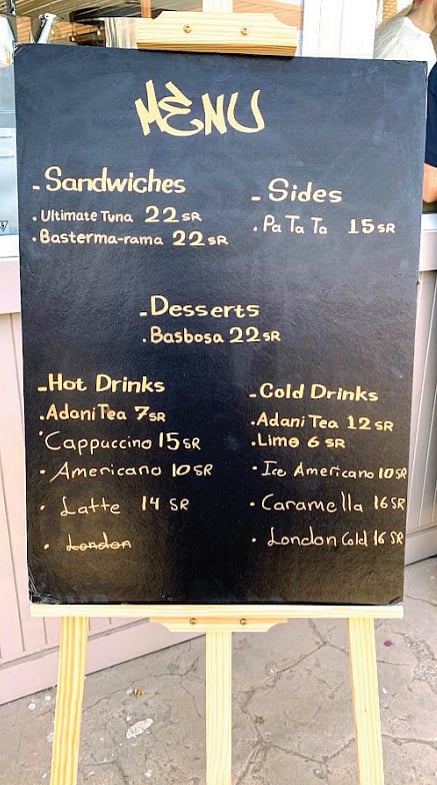 MENU
- Sandwiches
. Ultimate Tuna 22 SR
. Basterma-rama 22 SR
- Sides
. Pa Ta Ta 15 SR
- Desserts
. Basbosa 22 SR
- Hot Drinks
. Adani Tea 7 SR
· Cappuccino 15 SR
· Americano 10 SR
· Latte 14 SR
· London
- Cold Drinks
. Adani Tea 12 SR
. Lime 6 SR
· Ice Americano 10 SR
· Caramella 16 SR
· London Cold 16 SR